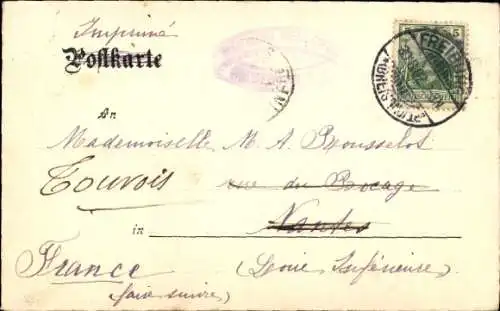 Imprimé
Postkarte
5
FREIBURG
An
Mademoiselle M. A. Brousselot
Touvois rue du Bocage
Nantes
in
France (Loire Inférieure)
(faire suivre)